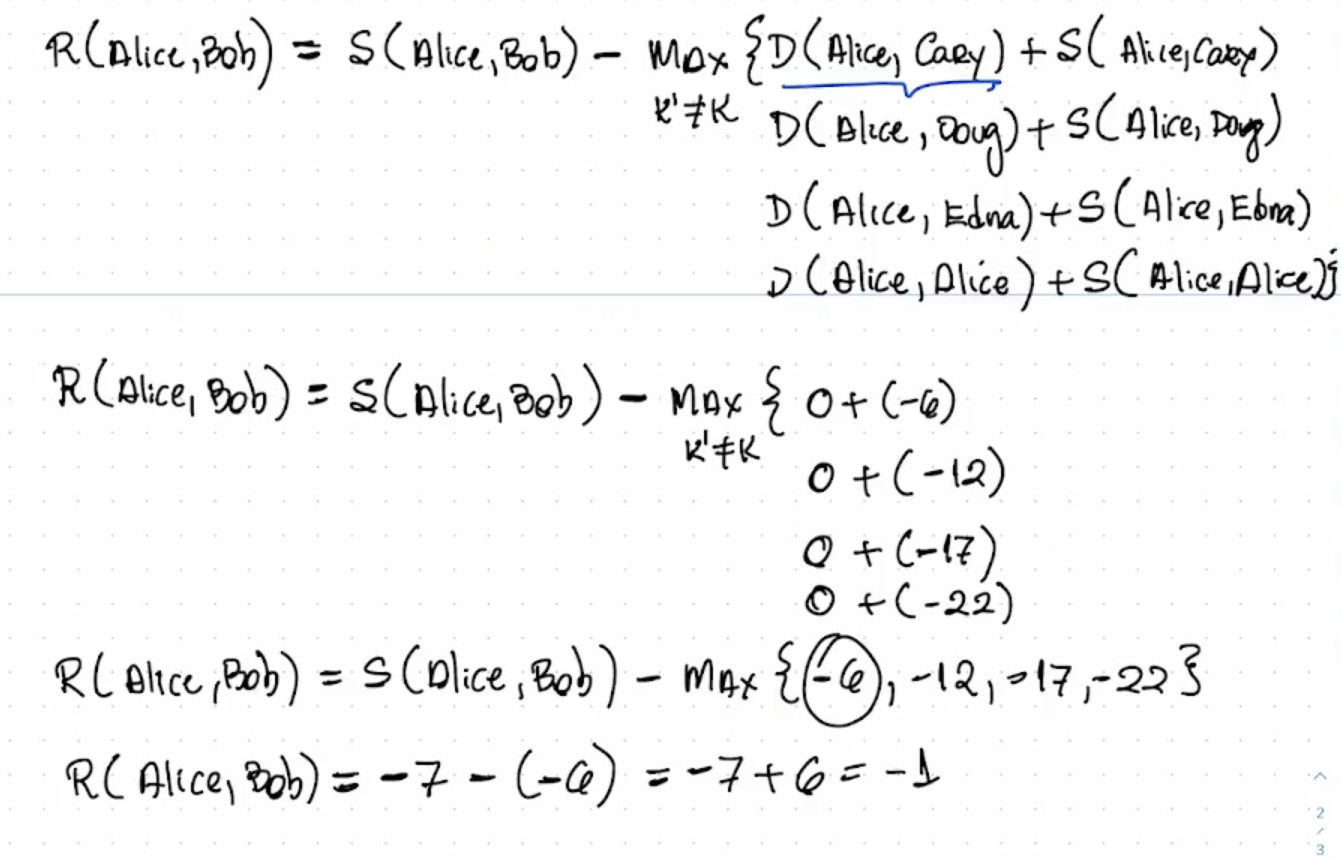 R(Alice,Bob) = S(Alice,Bob) - Max {D(Alice, Cary) + S(Alice,Cary)
K'≠K D(Alice, Doug) + S(Alice, Doug)
D(Alice, Edna) + S(Alice, Ebna)
D(Alice, Alice) + S(Alice,Alice)}
R(Alice, Bob) = S(Alice, Bob) - Max { 0 + (-6)
K'≠K
0 + (-12)
0 + (-17)
0 + (-22)
R(Alice,Bob) = S(Alice,Bob) - Max {-6, -12, -17, -22}
R(Alice, Bob) = -7 - (-6) = -7 + 6 = -1
2
/
3